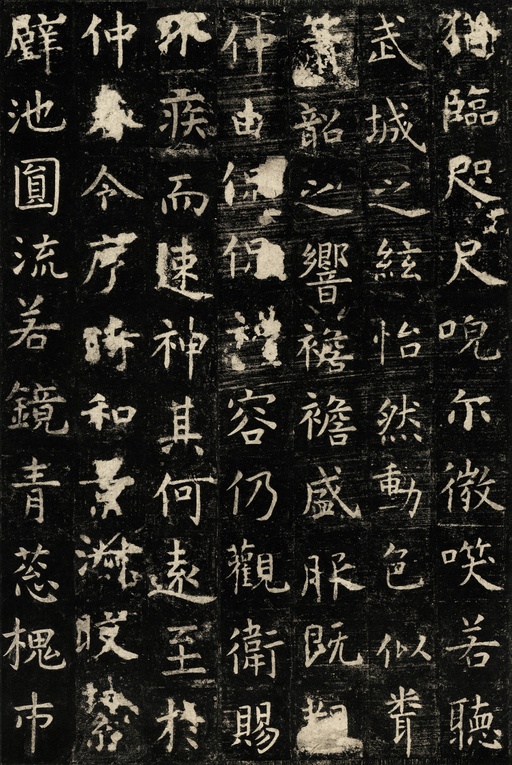 猶臨咫尺唲尔微咲若聽
武城之絃怡然動色似聞
簫韶之響襜襜盛服既覩
仲由侃侃禮容仍觀衛賜
不疾而速神其何遠至於
仲春令序時和景淑晈潔
璧池圎流若鏡青葱槐市